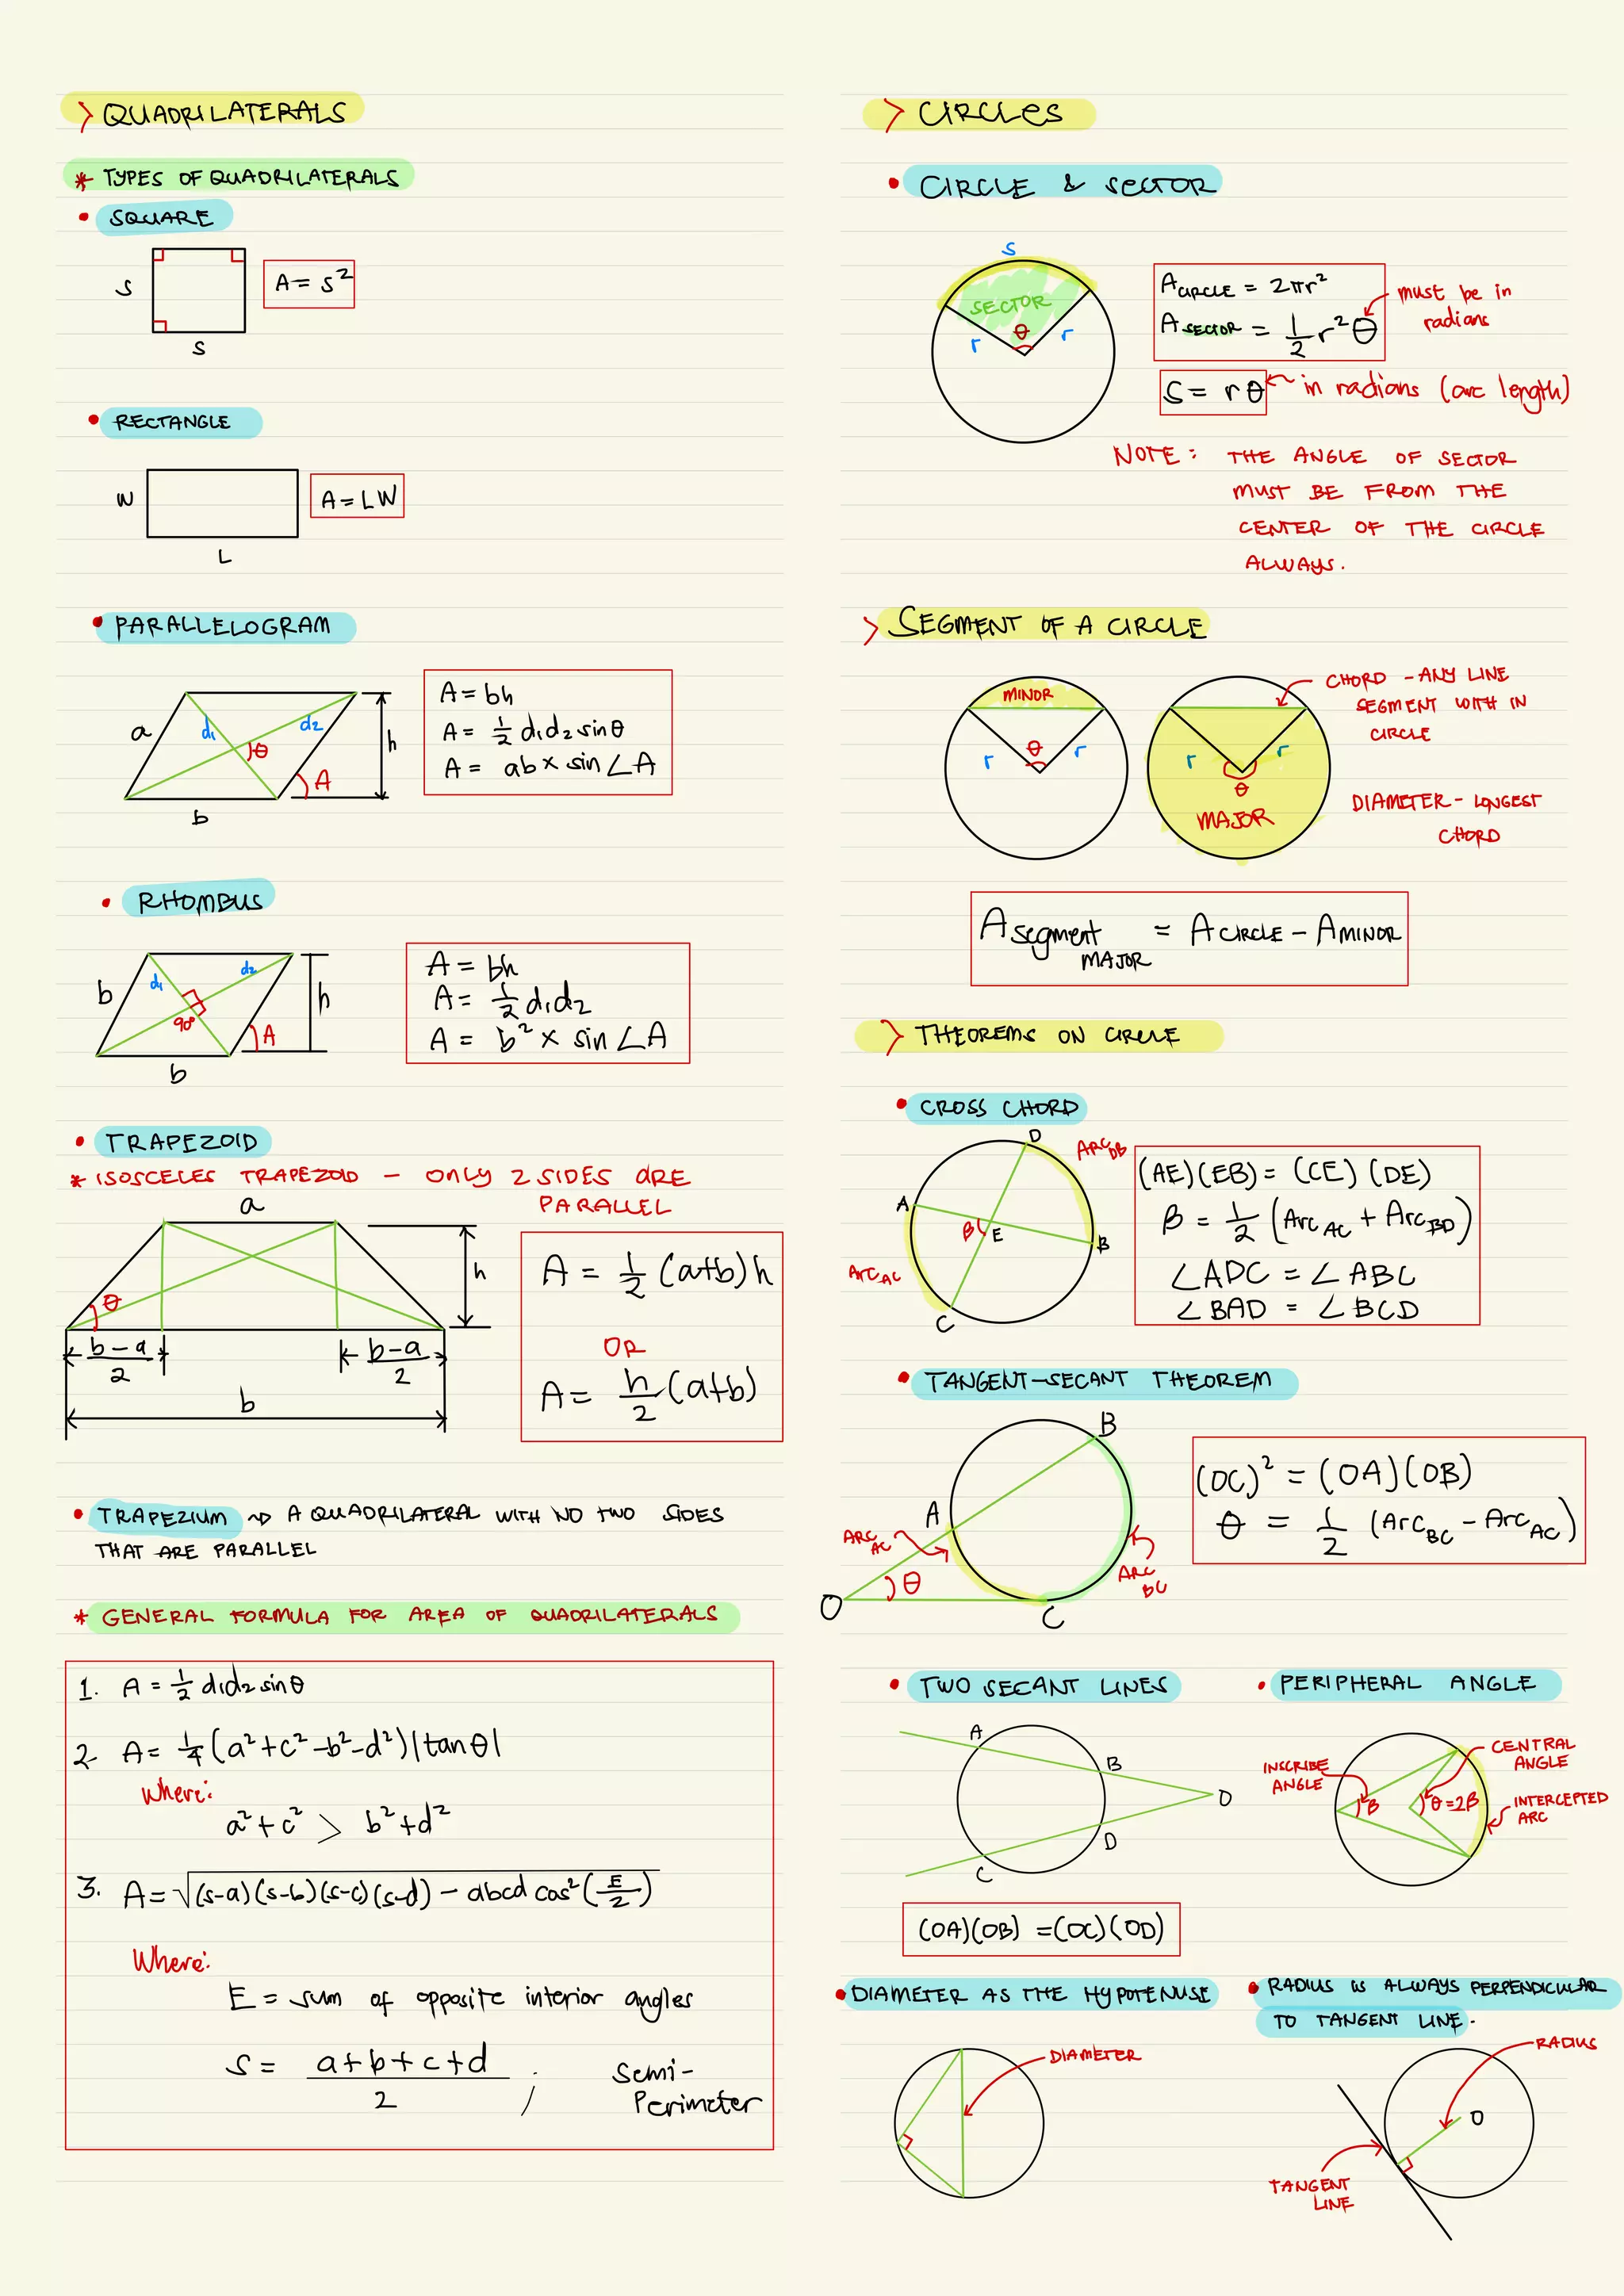 > QUADRILATERALS
* TYPES OF QUADRILATERALS
• SQUARE
S
A = s²
S
• RECTANGLE
W
A = LW
L
• PARALLELOGRAM
a
d₁
d₂
θ
A
h
b
A = bh
A = 1/2 d₁d₂ sinθ
A = ab × sin∠A
• RHOMBUS
b
d₁
d₂
90°
A
h
b
A = bh
A = 1/2 d₁d₂
A = b² × sin∠A
• TRAPEZOID
* ISOSCELES TRAPEZOID – ONLY 2 SIDES ARE
PARALLEL
a
θ
h
b-a/2
b-a/2
b
A = 1/2 (a+b)h
OR
A = h/2 (a+b)
• TRAPEZIUM ⇝ A QUADRILATERAL WITH NO TWO SIDES
THAT ARE PARALLEL
* GENERAL FORMULA FOR AREA OF QUADRILATERALS
1. A = 1/2 d₁d₂ sinθ
2. A = 1/4 (a²+c²-b²-d²)|tanθ|
Where:
a²+c² > b²+d²
3. A = √(s-a)(s-b)(s-c)(s-d) - abcd cos²(E/2)
Where:
E = sum of opposite interior angles
S = a+b+c+d/2 ; Semi-
Perimeter
> CIRCLES
• CIRCLE & SECTOR
S
SECTOR
θ
r
r
A CIRCLE = 2πr²
A SECTOR = 1/2 r²θ
must be in
radians
S = rθ
in radians (arc length)
NOTE: THE ANGLE OF SECTOR
MUST BE FROM THE
CENTER OF THE CIRCLE
ALWAYS.
> SEGMENT OF A CIRCLE
MINOR
θ
r
r
r
r
θ
MAJOR
CHORD – ANY LINE
SEGMENT WITH IN
CIRCLE
DIAMETER – LONGEST
CHORD
A segment MAJOR = A CIRCLE – A MINOR
> THEOREMS ON CIRCLE
• CROSS CHORD
D
ARC DB
A
β
E
B
ARC AC
C
(AE)(EB) = (CE)(DE)
β = 1/2 (Arc AC + Arc BD)
∠ADC = ∠ABC
∠BAD = ∠BCD
• TANGENT-SECANT THEOREM
B
A
ARC AC
θ
O
C
ARC BC
(OC)² = (OA)(OB)
θ = 1/2 (Arc BC - Arc AC)
• TWO SECANT LINES
A
B
O
D
C
(OA)(OB) = (OC)(OD)
• PERIPHERAL ANGLE
CENTRAL
ANGLE
INSCRIBE
ANGLE
β
θ=2β
INTERCEPTED
ARC
• DIAMETER AS THE HYPOTENUSE
DIAMETER
• RADIUS IS ALWAYS PERPENDICULAR
TO TANGENT LINE.
RADIUS
O
TANGENT
LINE